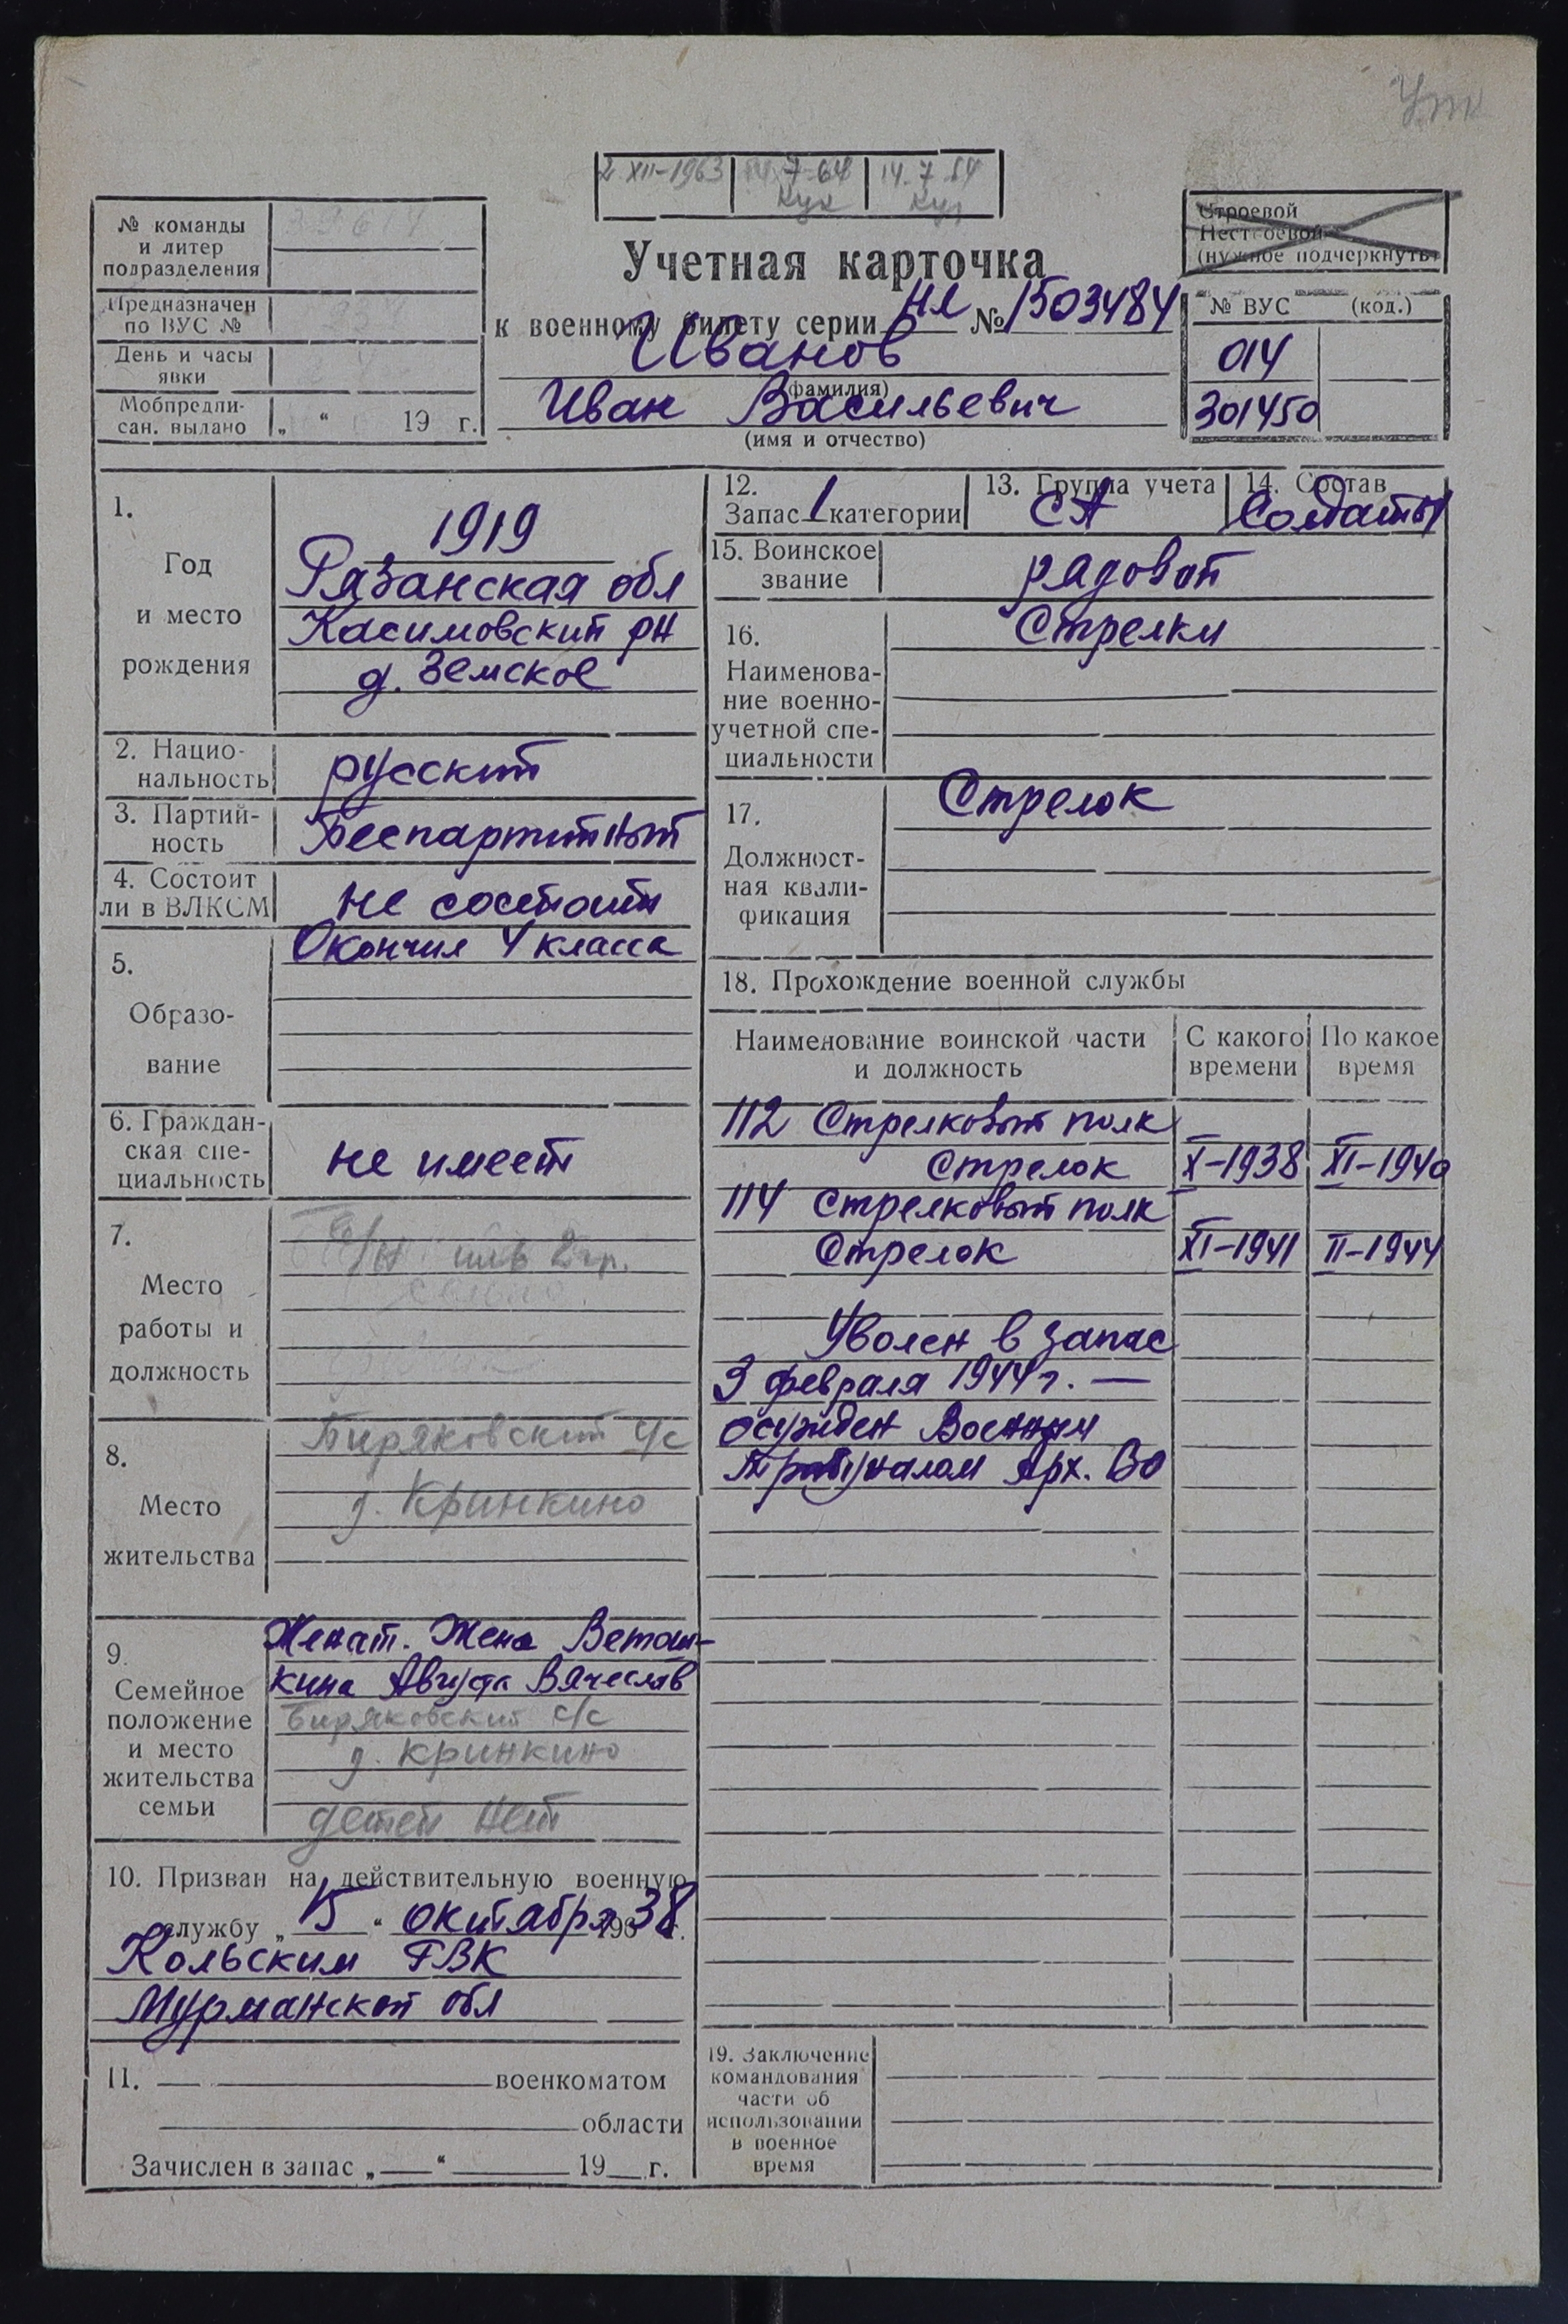 2 XII-1963 14.7-64 14.7.64
№ команды
и литер
подразделения
Предназначен
по ВУС №
День и часы
явки
Мобпредпи-
сан. выдано „ “ 19 г.
Учетная карточка
к военному билету серии НЛ № 1503484
Иванов
(фамилия)
Иван Васильевич
(имя и отчество)
Строевой
Нестроевой
(нужное подчеркнуть)
№ ВУС (код.)
014
301450
1.
Год
и место
рождения
1919
Рязанская обл
Касимовский рн
д. Земское
2. Нацио-
нальность
русский
3. Партий-
ность
Беспартийный
4. Состоит
ли в ВЛКСМ
не состоит
5.
Образо-
вание
Окончил 4 класса
6. Граждан-
ская спе-
циальность
не имеет
7.
Место
работы и
должность
инв 2 гр.
8.
Место
жительства
Биряковский с/с
д. Кринкино
9.
Семейное
положение
и место
жительства
семьи
Женат. Жена Ветош-
кина Августа Вячеслав
Биряковский с/с
д. Кринкино
детей нет
10. Призван на действительную военную
службу „15“ октября 1938 г.
Кольским ГВК
Мурманской обл
11. военкоматом
области
Зачислен в запас „ “ 19 г.
12.
Запас 1 категории
13. Группа учета
СА
14. Состав
Солдаты
15. Воинское
звание
рядовой
16.
Наименова-
ние военно-
учетной спе-
циальности
Стрелки
17.
Должност-
ная квали-
фикация
Стрелок
18. Прохождение военной службы
Наименование воинской части
и должность
С какого
времени
По какое
время
112 Стрелковый полк
Стрелок X-1938 XI-1940
114 Стрелковый полк
Стрелок XI-1941 II-1944
Уволен в запас
3 февраля 1944 г. —
осужден Военным
трибуналом Арх. ВО
19. Заключение
командования
части об
использовании
в военное
время